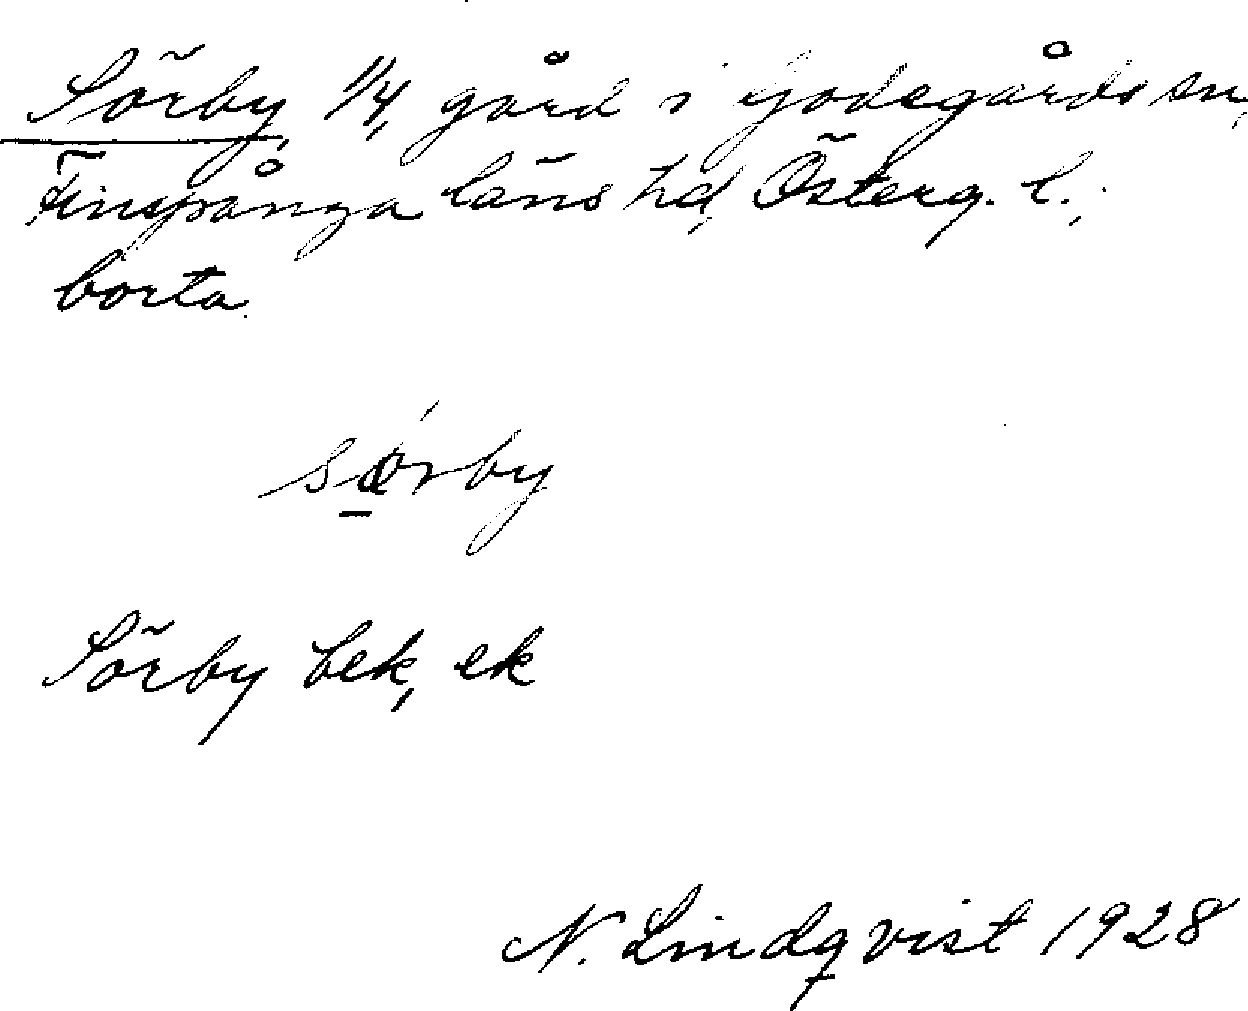 Sörby, 1/4, gård i Godegårds sn,
Finspånga läns hd, Österg. l.;
borta.
sørby
Sörby bek, ek
N. Lindqvist 1928